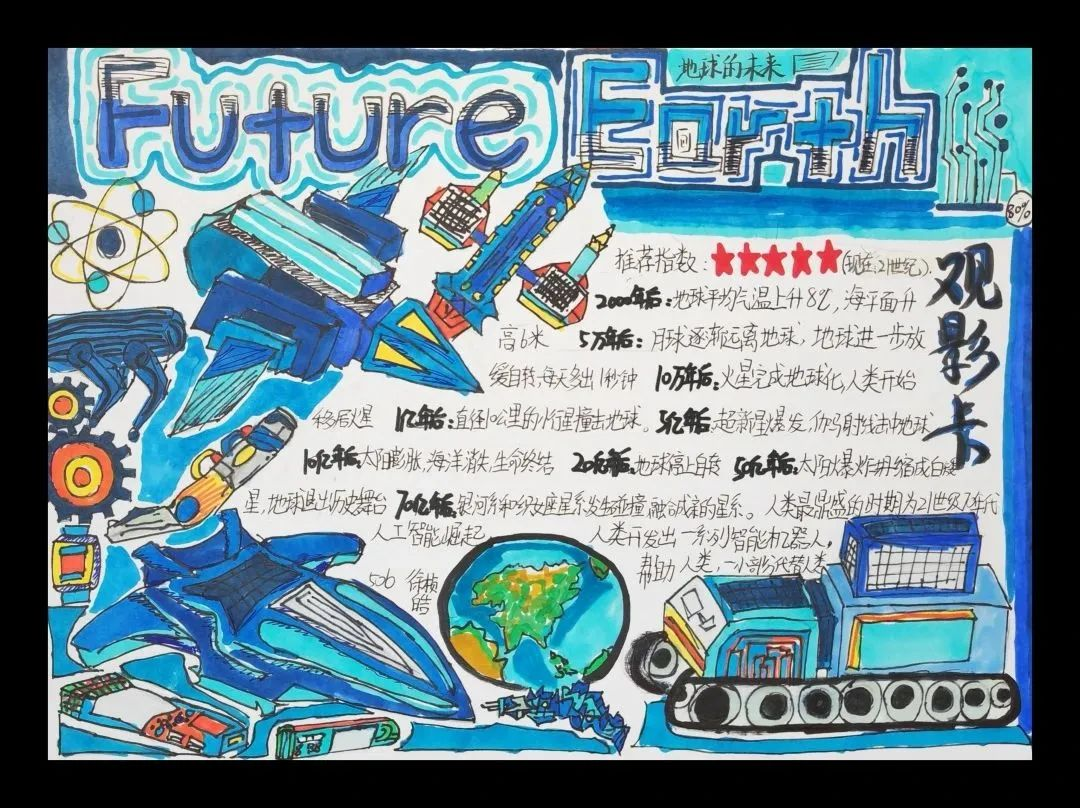 Future Earth
地球的未来
80%
观影卡
推荐指数：★★★★★(现在:21世纪).
2000年后:地球平均气温上升8℃，海平面升
高6米 5万年后：月球逐渐远离地球，地球进一步放
缓自转,每天多出1秒钟 10万年后:火星完成地球化,人类开始
移居火星 1亿年后:直径10公里的小行星撞击地球。5亿年后:超新星爆发,伽马射线击中地球
10亿年后:太阳膨胀,海洋消失,生命终结 20亿年后:地球停止自转 50亿年后:太阳爆炸并缩成白矮
星,地球退出历史舞台 70亿年后:银河系和仙女座星系发生碰撞,融合成新的星系。人类最鼎盛的时期为21世纪
人工智能崛起 人类开发出一系列智能机器人,
帮助人类,一小部分代替人类
506 徐桢
皓